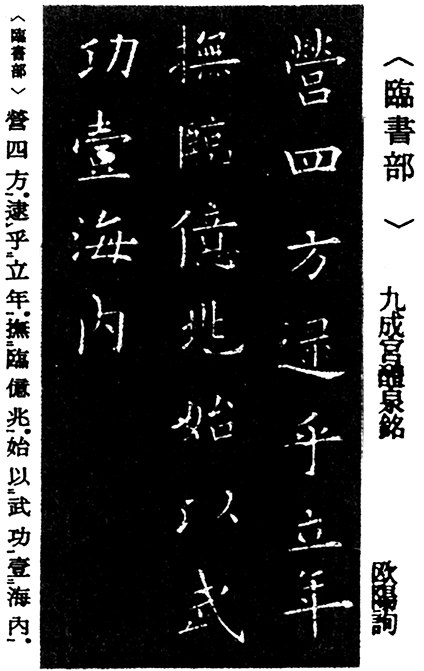 〈臨書部 〉 九成宮醴泉銘 欧陽詢
營四方逮乎立年
撫臨億兆始以武
功壹海内
〈臨書部〉 營四方。逮乎立年。撫臨億兆。始以武功壹海内。